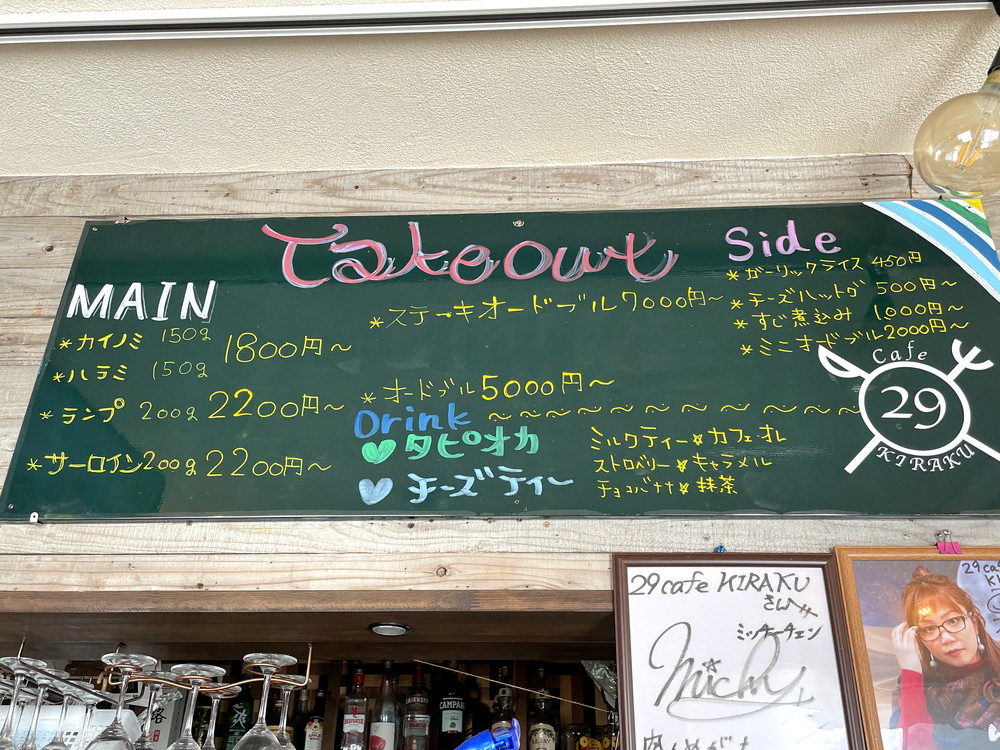 Takeout
MAIN
*カイノミ 150g
*ハラミ 150g
1800円~
*ランプ 200g 2200円~
*サーロイン200g 2200円~
*ステーキオードブル7000円~
*オードブル5000円~
Drink ~~~~~~~~~~~~
タピオカ
チーズティー
ミルクティー*カフェオレ
ストロベリー*キャラメル
チョコバナナ*抹茶
Side
*ガーリックライス 450円
*チーズハットグ 500円~
*すじ煮込み 1000円~
*ミニオードブル2000円~
Cafe
29
KIRAKU
29cafe KIRAKU
さんへ
ミッチーチェン
Michy
29ca
BEEFEATER
SMIRNOFF
CAMPARI